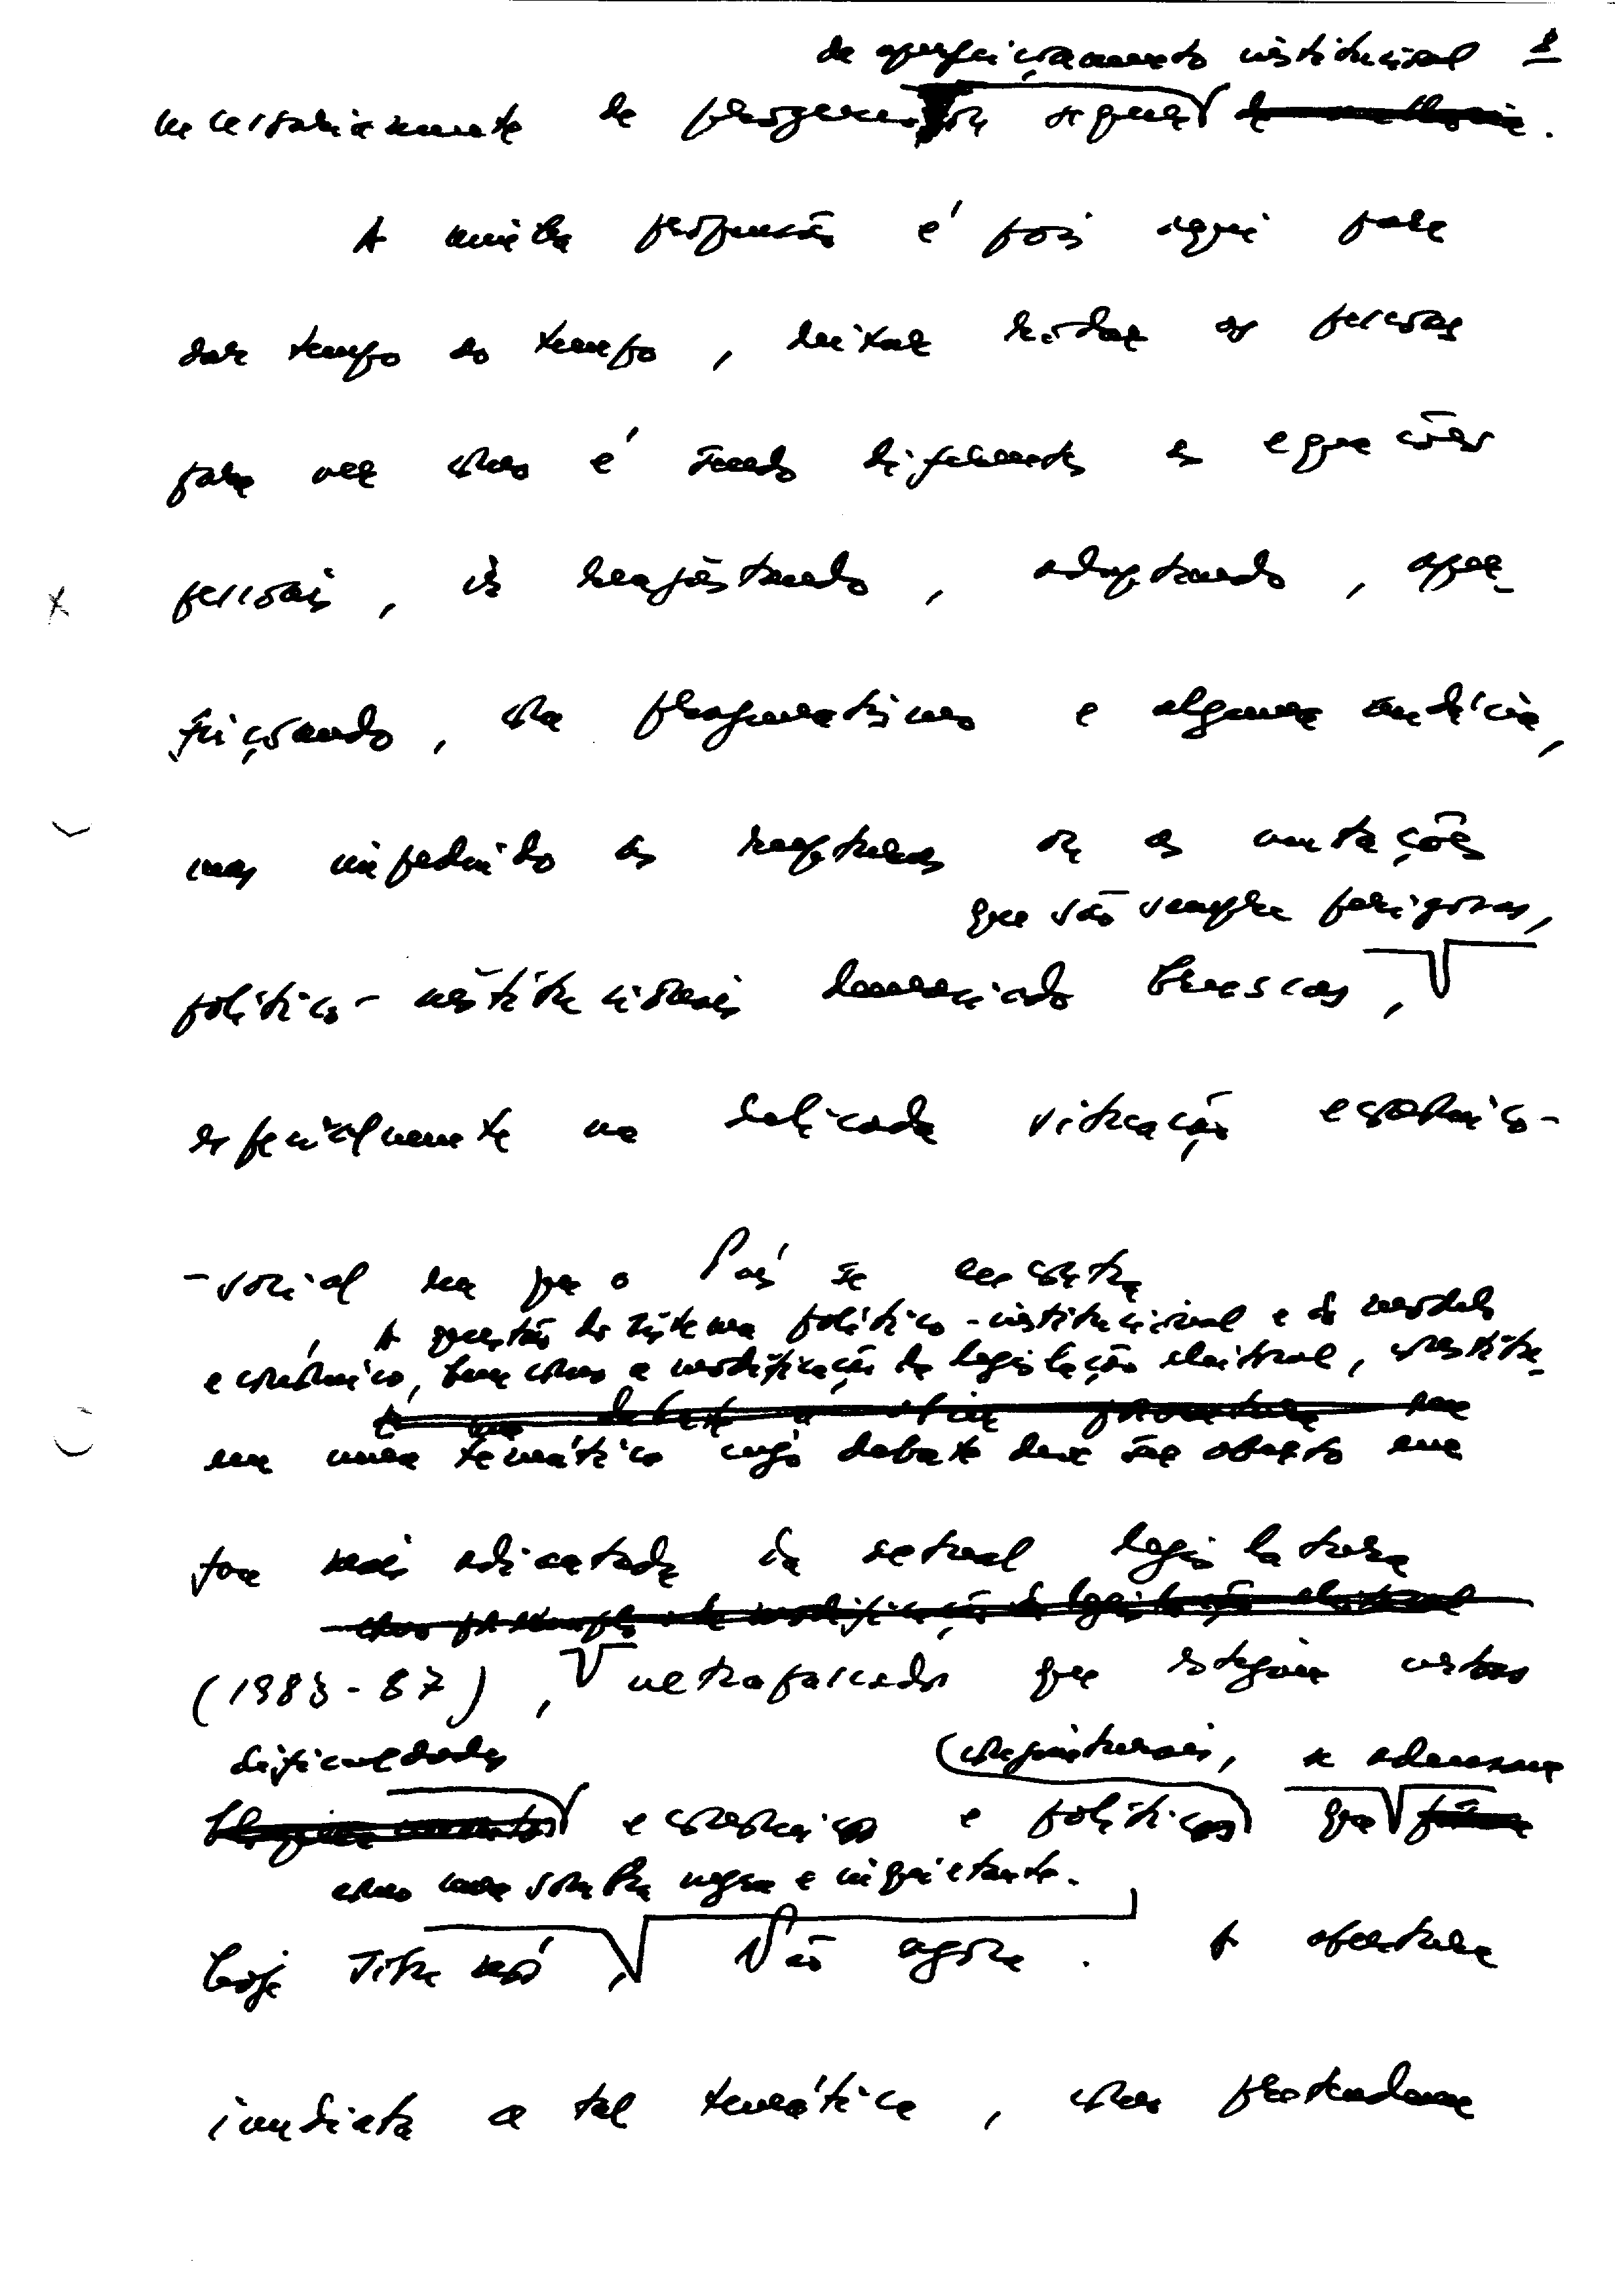 de aperfeiçoamento institucional 8
necessariamente de progresso ou sequer de melhoria.
A minha propensão é pois aqui para
dar tempo ao tempo, deixar rodar as pessoas
para ver como é sendo diferentes as equações
pessoais, ir reajustando, adaptando, aper-
feiçoando, com pragmatismo e alguma audácia,
mas impedindo as rupturas ou as mutações
que são sempre perigosas,
político-institucionais demasiado bruscas,
especialmente na delicada situação económico-
-social em que o País se encontra
A questão do sistema político-institucional e do modelo
económico, bem como a modificação da legislação eleitoral, constitu-
em uma temática cujo debate deve ser aberto em
fase mais adiantada da actual legislatura
(1983-87), ultrapassadas que estejam certas
dificuldades (conjunturais, se adensam
económicas e políticas que
como uma sombra negra e inquietante.
hoje sobre nós, Não agora. A abertura
imediata a tal temática, como pretendem